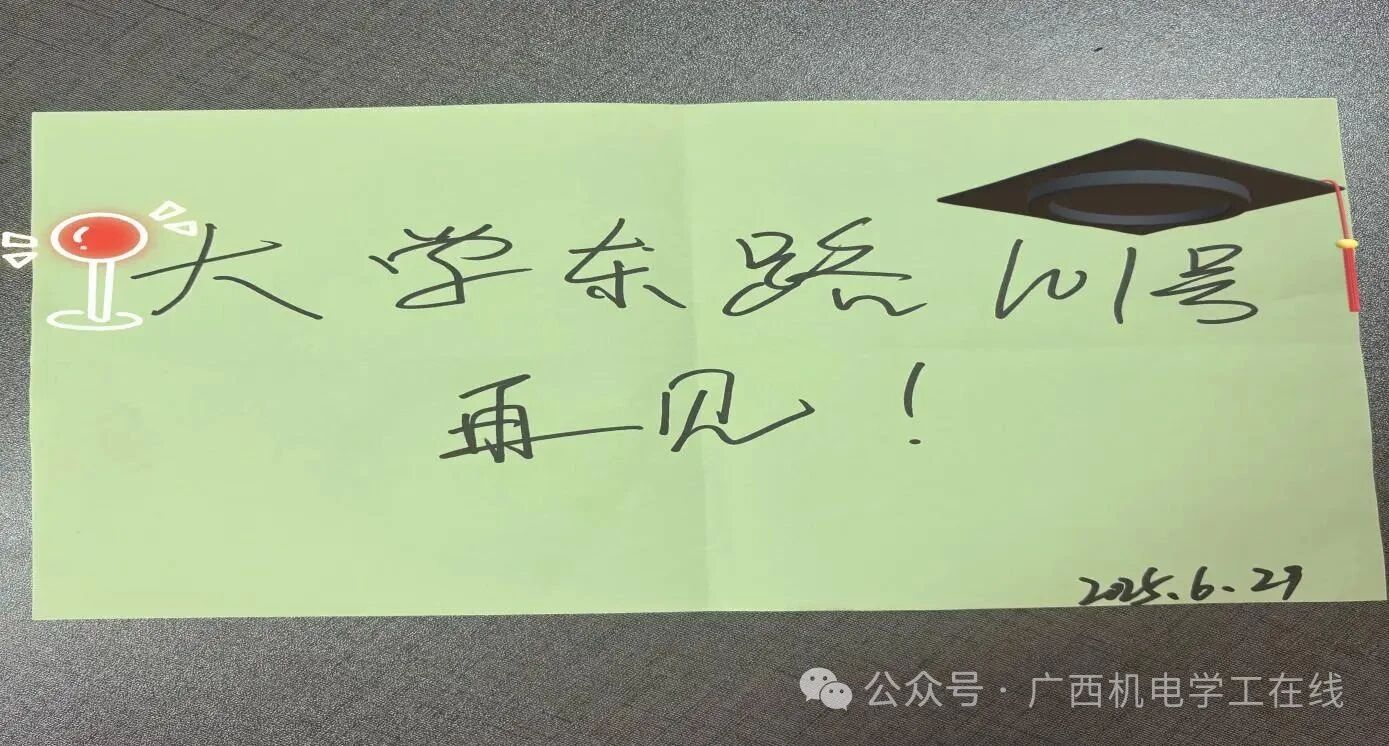 大学东路101号
再见！
2025.6.29
公众号·广西机电学工在线